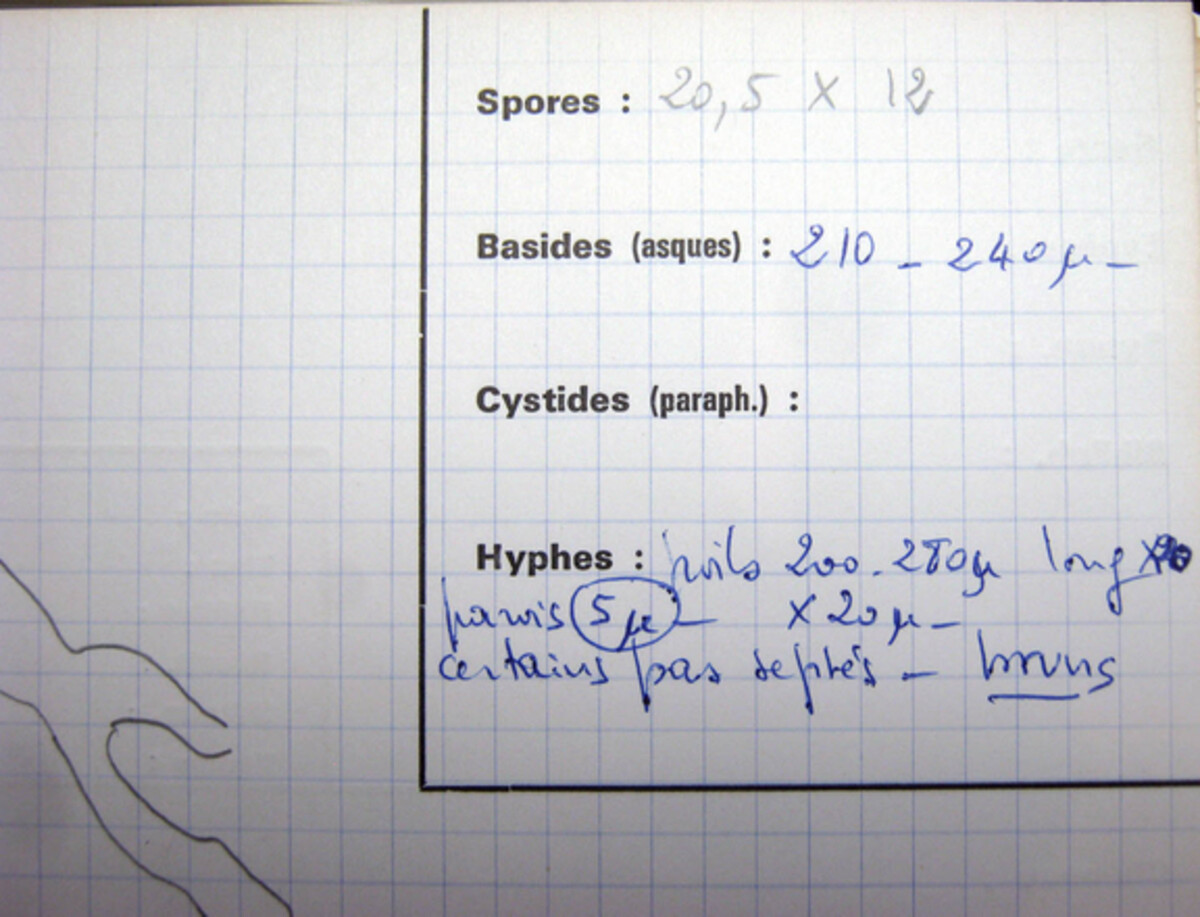 Spores : 20,5 x 12
Basides (asques) : 210 - 240 µ -
Cystides (paraph.) :
Hyphes : poils 200 - 280 µ long x
parois 5 µ - x 20 µ -
certains pas septés - bruns